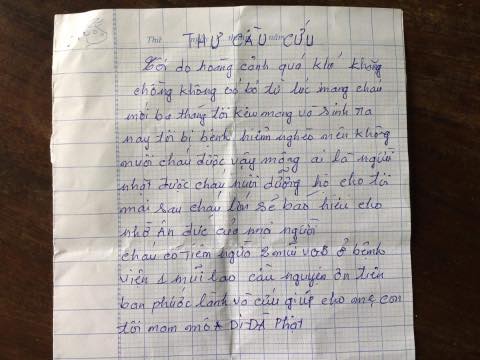 Thứ ngày tháng năm
THƯ CẦU CỨU
Tôi do hoàng cảnh quá khó không
chồng không có bỏ từ lúc mang chau
mới ba tháng tôi kêu mang và sinh ra
nay tôi bị bệnh hiểm nghèo nên không
nuôi cháu được vậy mông ai là người
nhặt được cháu nuôi dưỡng hộ cho tôi
mai sau cháu lớn sẽ báo hiếu cho
nhờ Ân đức của nhà người
cháu có tiêm ngừa 2 mũi vgB ở bệnh
viên 1 mũi lao cầu nguyên ơn trên
ban phước lành và cứu giúp cho mẹ con
tôi mam mô A Di DÀ Phật